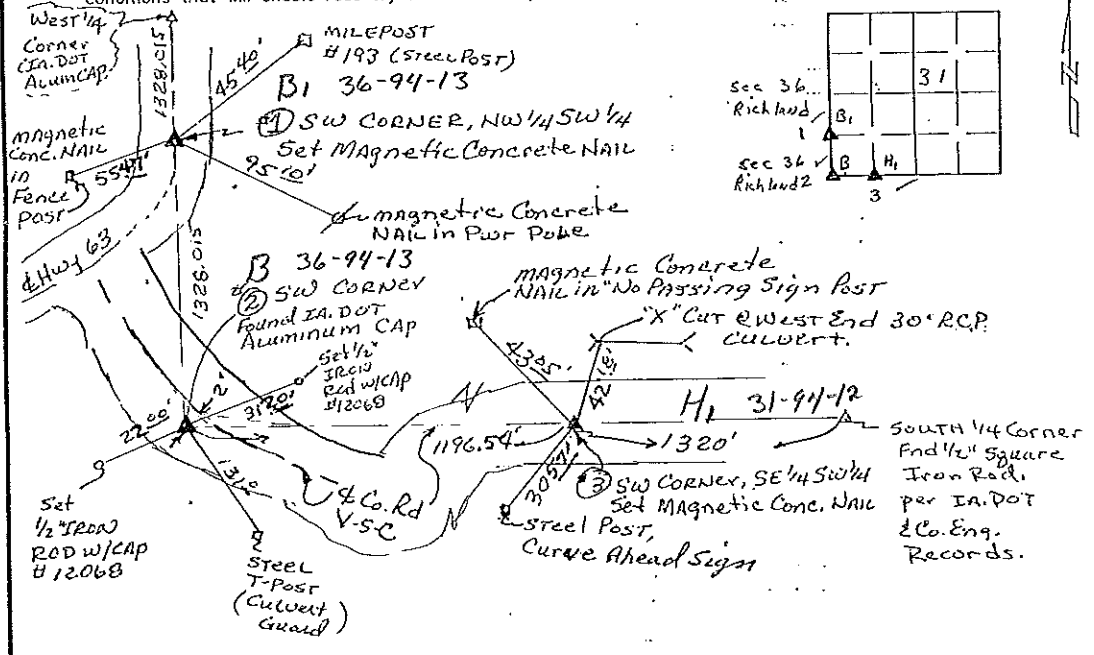 West 1/4
Corner
(IA. DOT
Alum CAP.
1328.015
45.40'
MILEPOST
#193 (Steel Post)
B1 36-94-13
① SW CORNER, NW 1/4 SW 1/4
Set MAgNetic Concrete NAIL
magnetic
Conc. NAIL
in
Fence
Post
55.47'
95.10'
magnetic Concrete
NAIL in Pwr Pole
1328.015
Hwy 63
B 36-94-13
② SW CORNER
Found IA. DOT
Aluminum CAp
Set 1/2"
IRON
Rod w/CAp
#12068
2"
31.20'
22.00'
Set
1/2" IRON
ROD w/CAp
# 12068
STEEL
T-Post
(Culvert
Guard)
Co. Rd
V-5-C
magnetic Concrete
NAIL in "No Passing Sign Post
"X" Cut @ West End 30" R.C.P.
Culvert.
43.05'
42.15'
1196.54'
1320'
H1 31-94-12
30.57'
③ SW CORNER, SE 1/4 SW 1/4
Set MAgNetic Conc. NAIL
Steel Post,
Curve Ahead Sign
SOUTH 1/4 Corner
Fnd 1/2" Square
Iron Rod.
per IA. DOT
& Co. Eng.
Records.
sec 36
Richland
1
B1
31
sec 36
Richland 2
B
H1
3
N